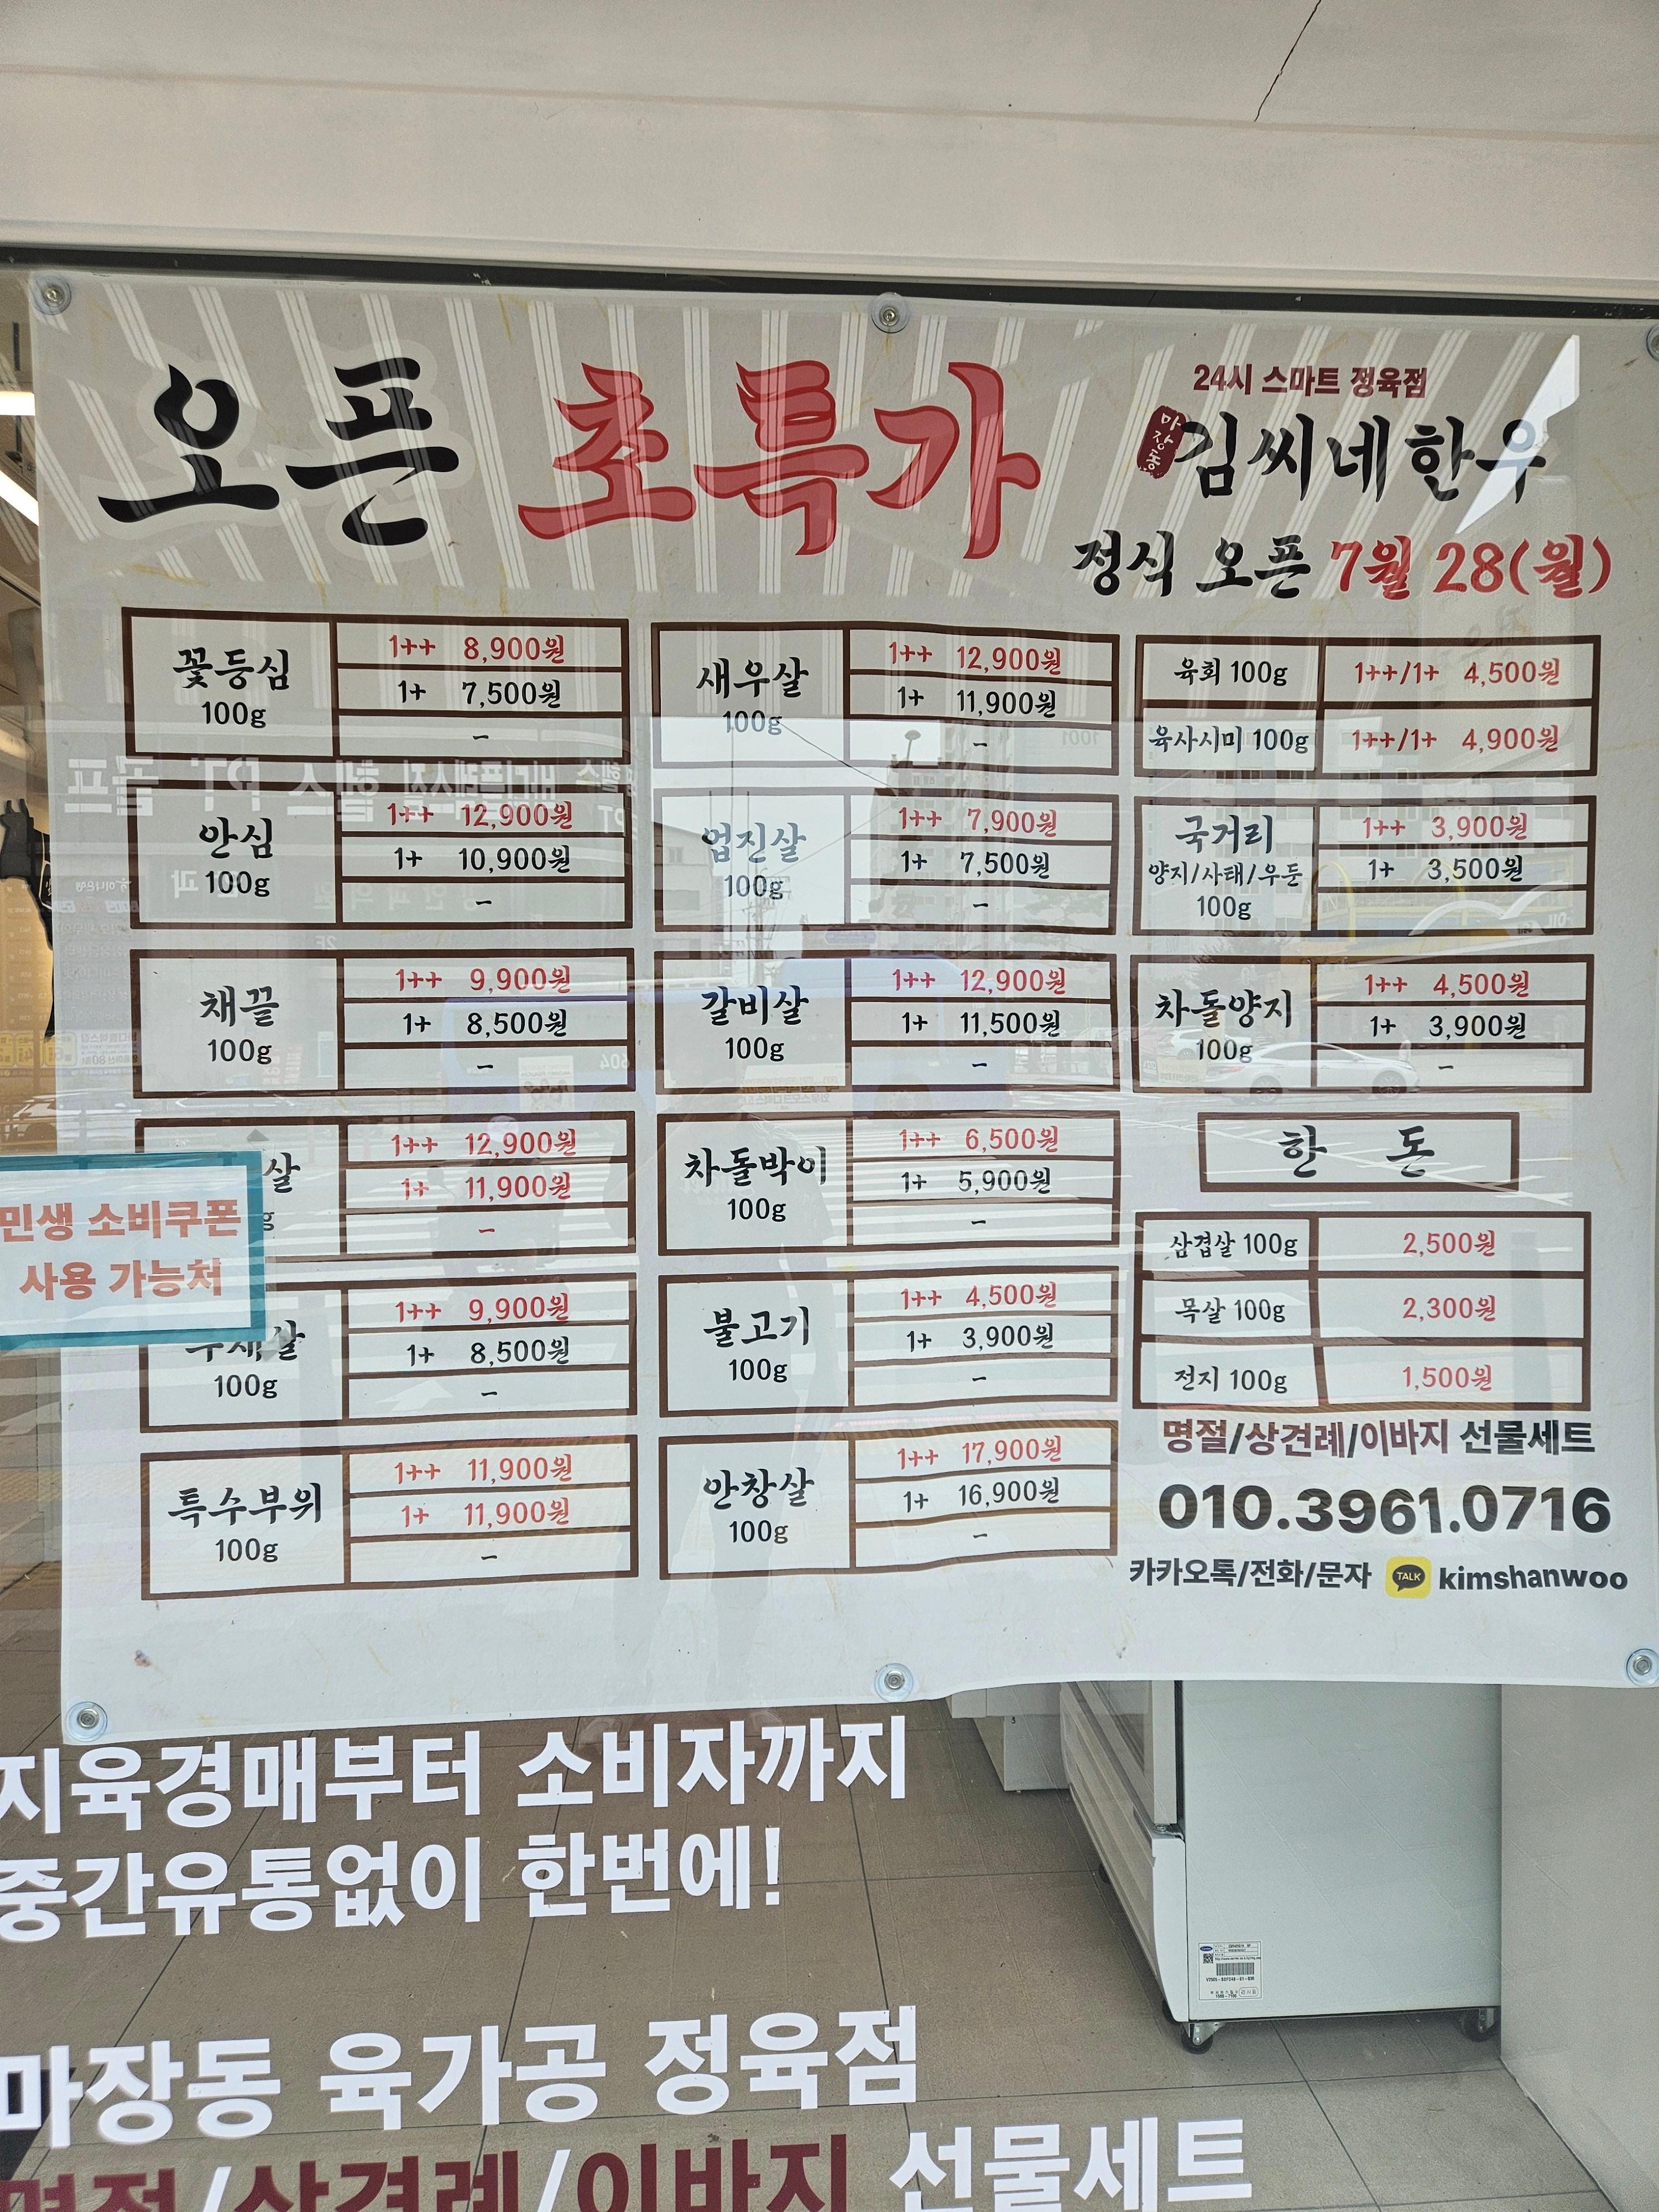 오픈 초특가
24시 스마트 정육점
마장동 김씨네한우
정식 오픈 7월 28(월)
꽃등심 100g
1++ 8,900원
1+ 7,500원
-
안심 100g
1++ 12,900원
1+ 10,900원
-
채끝 100g
1++ 9,900원
1+ 8,500원
-
살
g
1++ 12,900원
1+ 11,900원
-
살
100g
1++ 9,900원
1+ 8,500원
-
특수부위 100g
1++ 11,900원
1+ 11,900원
-
새우살 100g
1++ 12,900원
1+ 11,900원
-
업진살 100g
1++ 7,900원
1+ 7,500원
-
갈비살 100g
1++ 12,900원
1+ 11,500원
-
차돌박이 100g
1++ 6,500원
1+ 5,900원
-
불고기 100g
1++ 4,500원
1+ 3,900원
-
안창살 100g
1++ 17,900원
1+ 16,900원
-
육회 100g 1++/1+ 4,500원
육사시미 100g 1++/1+ 4,900원
국거리
양지/사태/우둔
100g
1++ 3,900원
1+ 3,500원
-
차돌양지 100g
1++ 4,500원
1+ 3,900원
-
한 돈
삼겹살 100g 2,500원
목살 100g 2,300원
전지 100g 1,500원
명절/상견례/이바지 선물세트
010.3961.0716
카카오톡/전화/문자 TALK kimshanwoo
민생 소비쿠폰
사용 가능처
지육경매부터 소비자까지
중간유통없이 한번에!
마장동 육가공 정육점
명절/상견례/이바지 선물세트